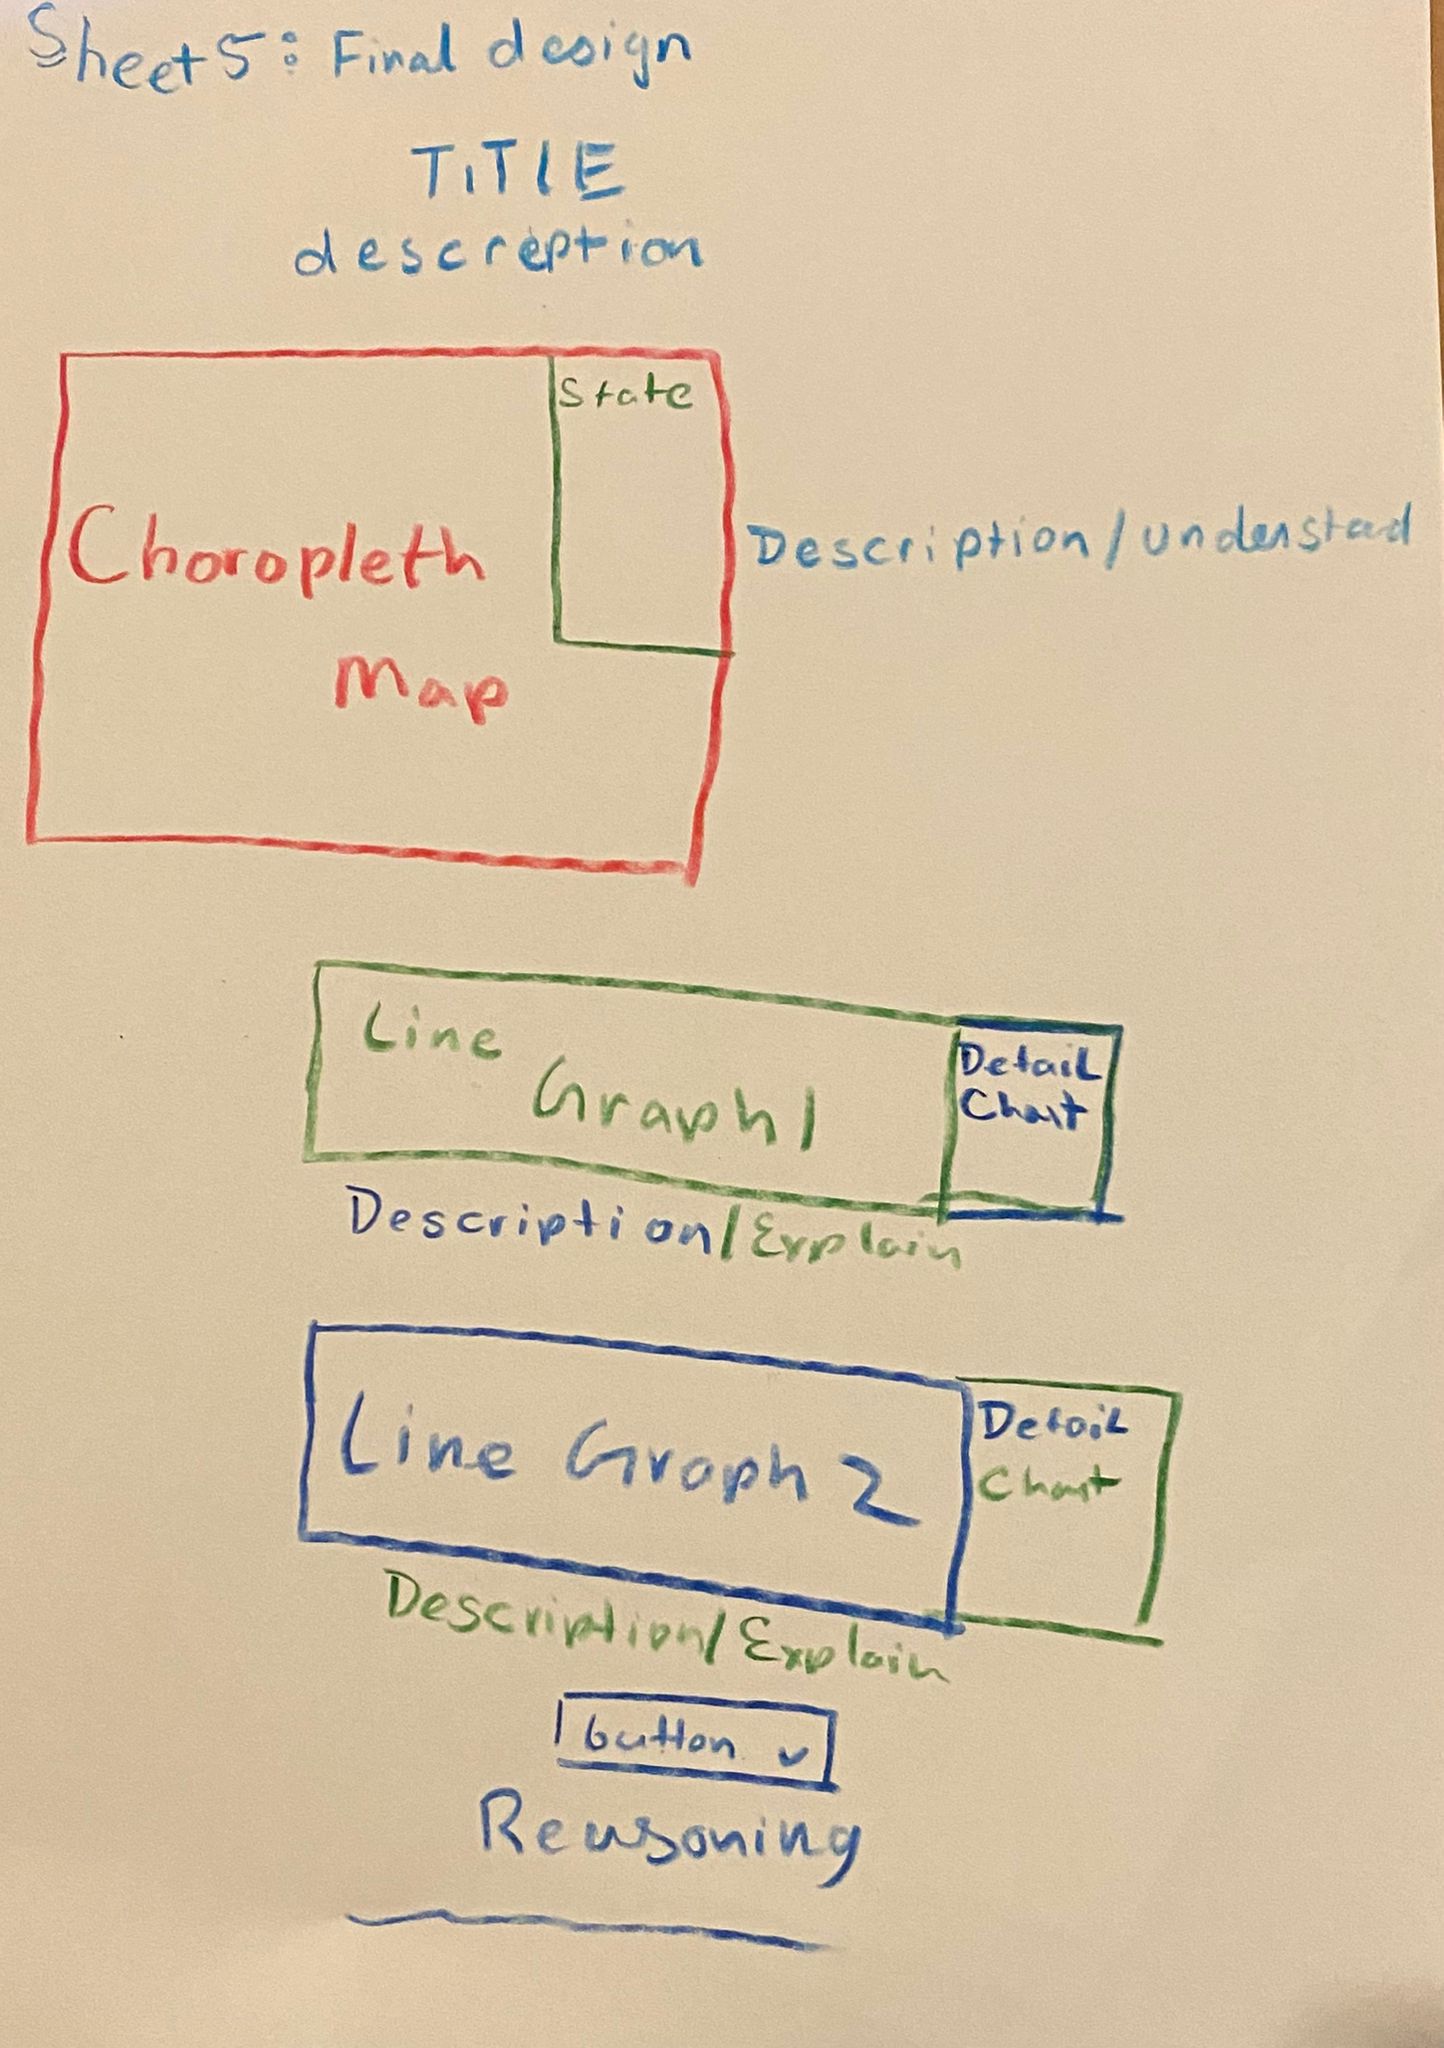 Sheet 5: Final design
TITLE
descreption
State
Choropleth
Map
Description/understad
Line
Graph 1
Detail
Chart
Description/Explain
Line Graph 2
Detail
Chart
Description/Explain
button
Reasoning